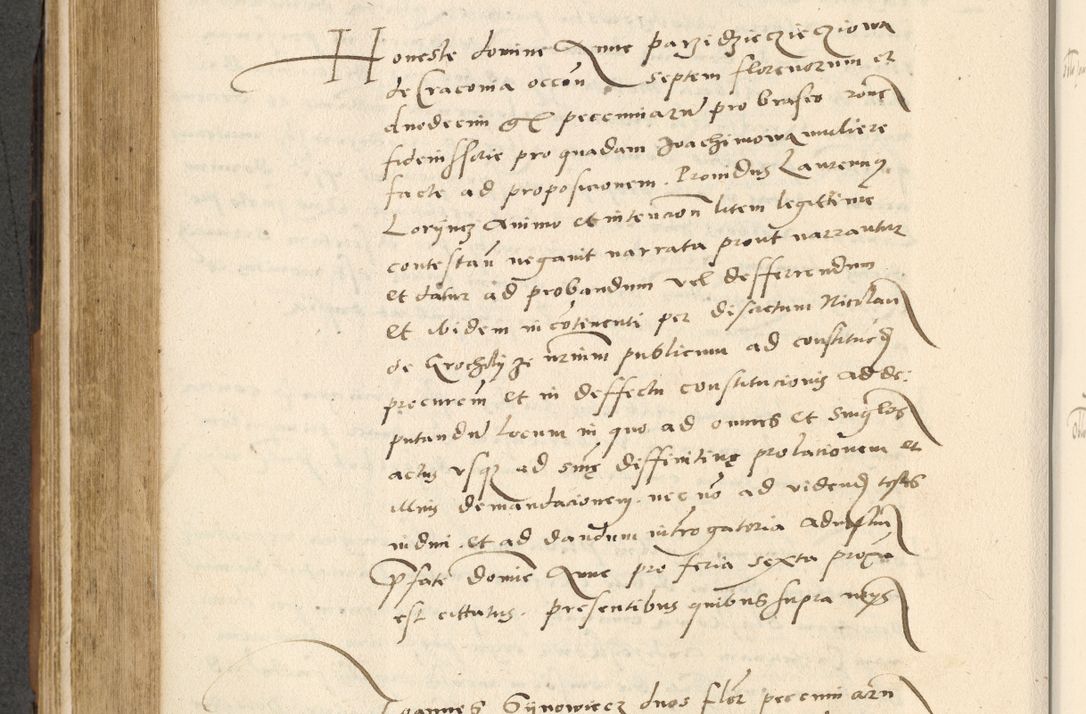 Honeste domine Anne parzidziecziecziowa
de Cracovia occōn septem florenorum et
duodecim gℓ pecuniarū pro braseo rōne
fideiussorie pro quadam Joachimowa muliere
facte ad proposicionem. Providus Laurenciꝰ
Lorÿncz animo et intencion litem legittime
contestan̄ negavit narrata prout narrantur
et datur ad probandum vel defferrendum
et ibidem in cōtinenti per discretum Nicolaū
de Grochoÿcze n̄rium publicum ad constituēd
procurem̄ et in deffectu constitucionis ad de:
putandū locum in quo ad omnes et singlos
actus usqꝫ ad snīe diffinitive prolacionem et
illius demandacionem. nec nō ad videnđ testes
induci. et ad dandum introgatoria ad instan̄
p̄fate domīe Anne pro feria sexta proxīa
est cittatus. presentibus quibus supra
Joannes duos flor̄ pecuniarū